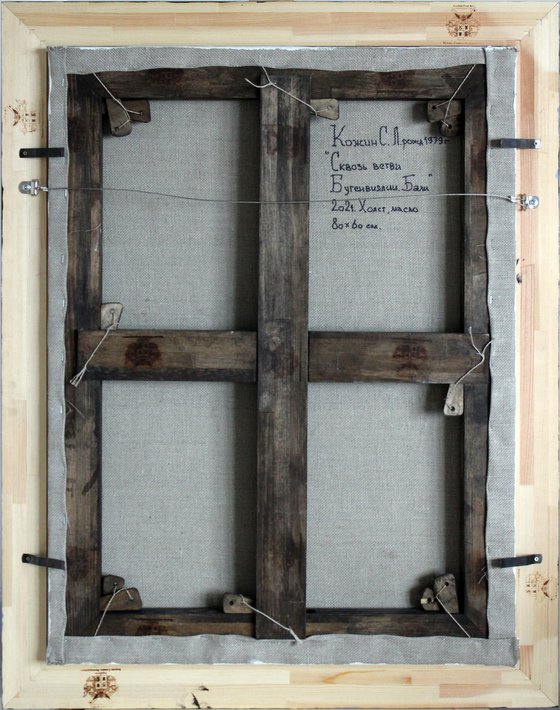 Кожин С. Л. рожд 1979 г
"Сквозь ветви
Бугенвиллии. Бали"
2021. Холст, масло
80 х 60 см.